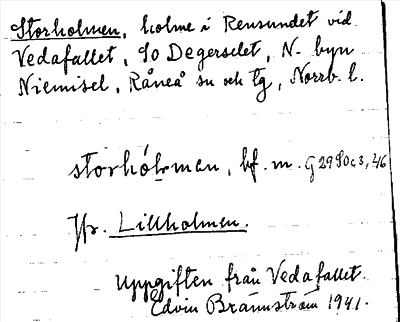 Storholmen, holme i Rensundet vid
Vedafallet, SO Degerselet, N. byn
Niemisel, Råneå sn och tg, Norrb. l.
storhólmen, bf. m.
Jfr. Lillholmen.
Uppgiften från Vedafallet.
Edvin Brännström 1941.